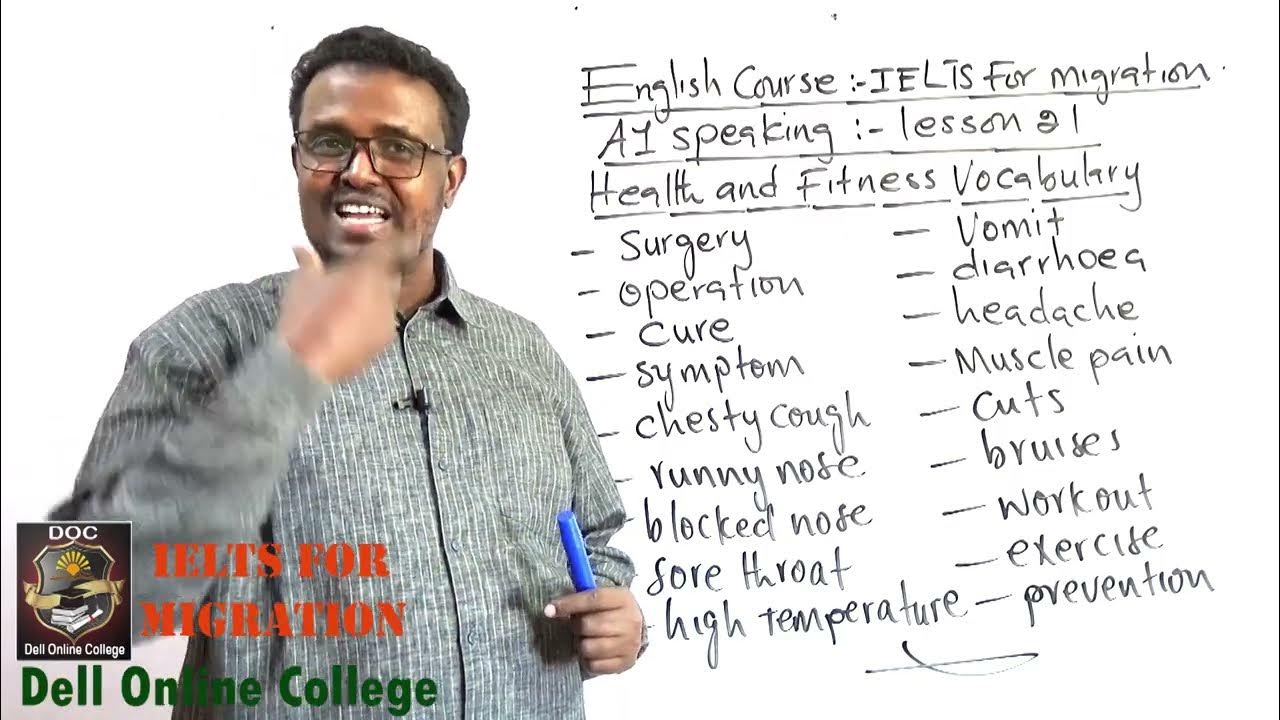 English Course :- IELTS For migration.
A1 speaking :- lesson 21
Health and Fitness Vocabulary
- Surgery
- operation
- Cure
- symptom
- chesty cough
- runny nose
- blocked nose
- sore throat
- high temperature
- Vomit
- diarrhoea
- headache
- Muscle pain
- cuts
- bruises
- workout
- exercise
- prevention
DOC
Dell Online College
IELTS FOR
MIGRATION
Dell Online College